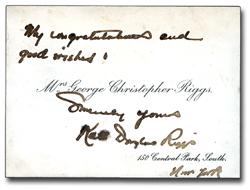 My congratulations and
good wishes!
Mrs George Christopher Riggs.
Sincerely yours
Kate Douglas Riggs
150 Central Park, South.
New York